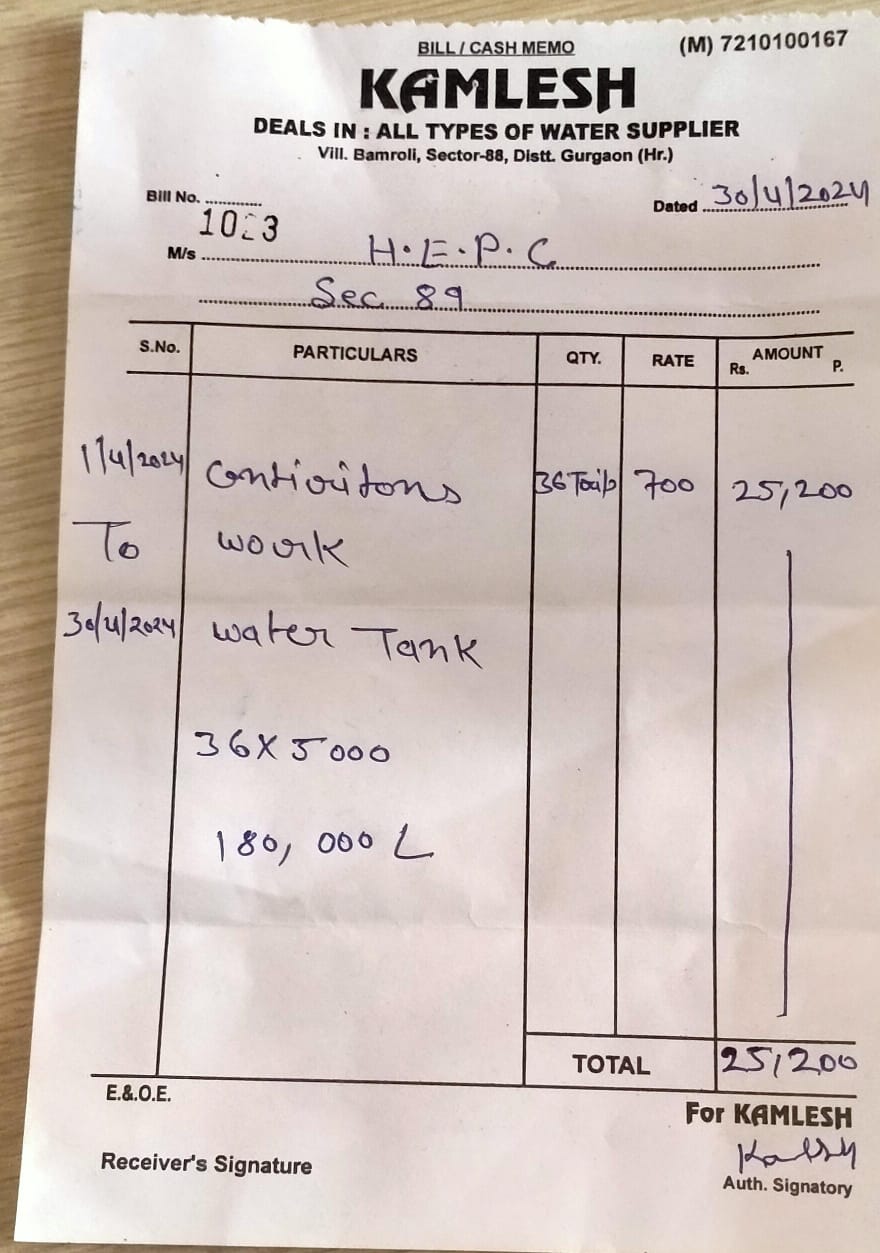 BILL / CASH MEMO (M) 7210100167
KAMLESH
DEALS IN : ALL TYPES OF WATER SUPPLIER
Vill. Bamroli, Sector-88, Distt. Gurgaon (Hr.)
Bill No. ............. Dated 30/4/2024
M/s H.E.P.C
Sec 89
S.No. PARTICULARS QTY. RATE AMOUNT
Rs. P.
1/4/2024 36 700 25,200
To work
30/4/2024 water Tank
36 X 5000
180,000 L
TOTAL 25,200
E.&.O.E.
For KAMLESH
Receiver's Signature
Auth. Signatory